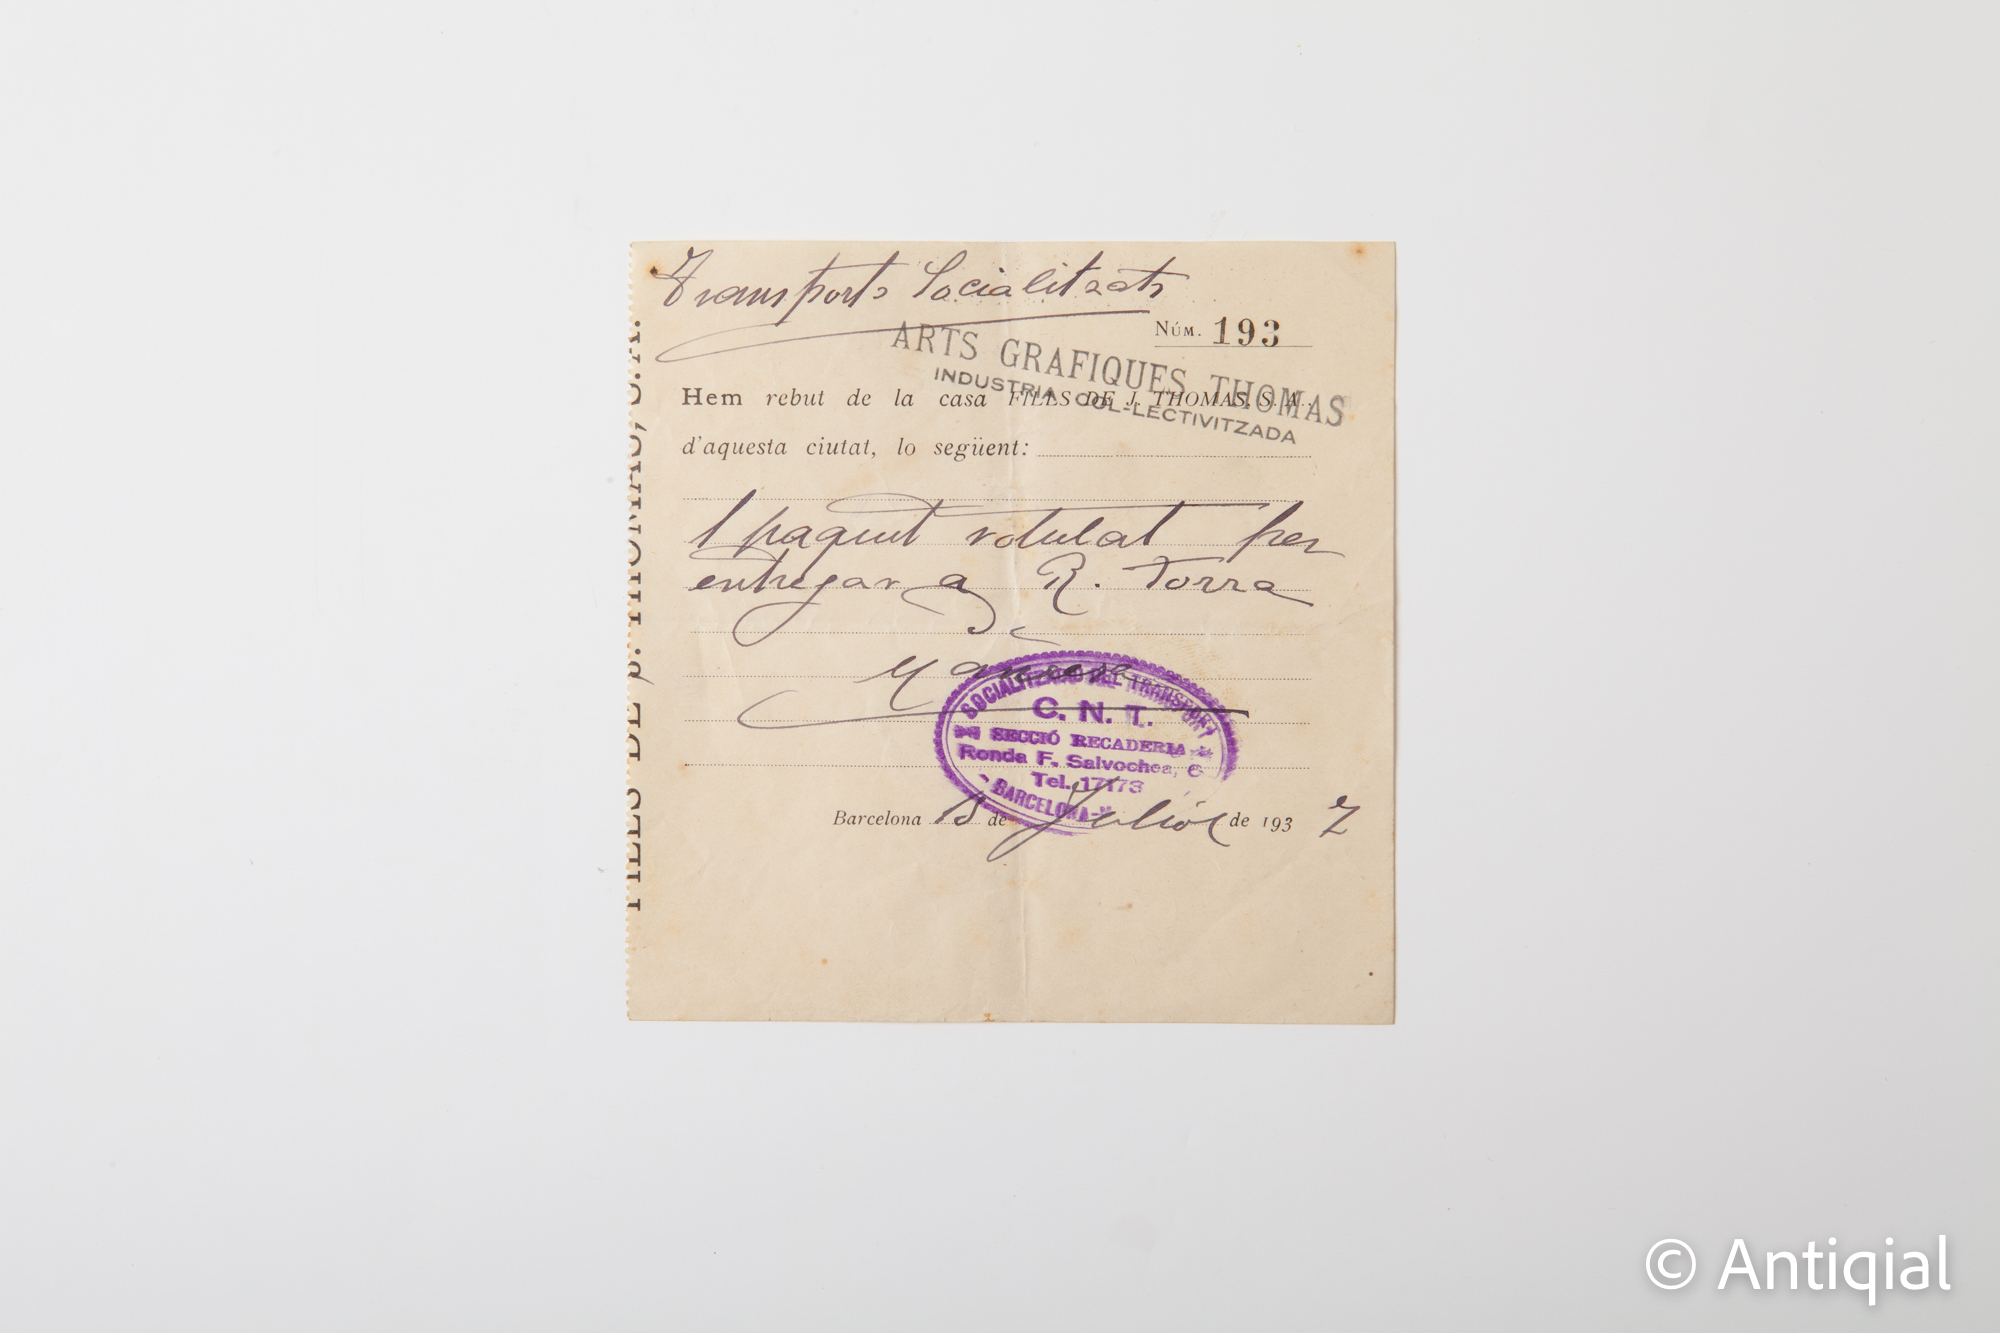 Transports Socialitzats
NÚM. 193
ARTS GRAFIQUES THOMAS
INDUSTRIA COL-LECTIVITZADA
Hem rebut de la casa FILLS DE J. THOMAS, S. A.
d'aquesta ciutat, lo següent:
1 paquet rotulat per
entregar a R. Torra
Manresa
SOCIALITZACIÓ DEL TRANSPORT
C. N. T.
SECCIÓ RECADERIA
Ronda F. Salvochea, 6
Tel. 17173
BARCELONA
Barcelona de Juliol de 1937
FILLS DE J. THOMAS, S. A.
© Antiqial